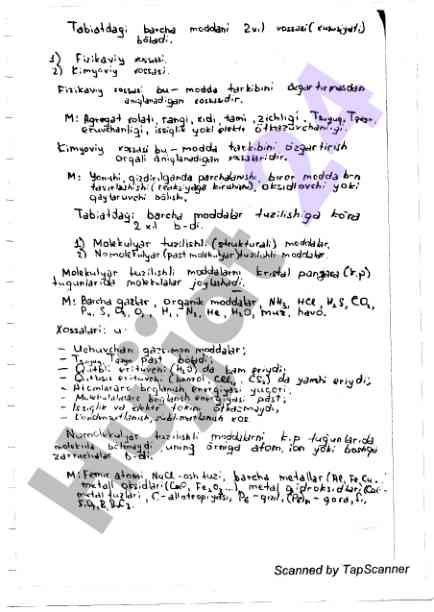 Tabiatdagi barcha moddani 2 xil xossasi (xususiyati)
bòladi.
1) Fizikaviy xossasi.
2) Kimyoviy xossasi.
Fizikaviy xossasi bu- modda tarkibini òzgartirmasdan
aniqlanadigan xossasidir.
M: Agregat holati, rangi, hidi, tami, zichligi,
eruvchanligi, issiqlik yoki elektr òtkazuvchanligi.
Kimyoviy xossasi bu- modda tarkibini òzgartirish
orqali aniqlanadigan xossalaridir.
M: Yonishi, qizdirilganda parchalanishi, biror modda b-n
tasirlashishi (reaksiyaga kirishishi), oksidlovchi yoki
qaytaruvchi bòlish.
Tabiatdagi barcha moddalar tuzilishiga kòra
2 xil b-di.
1) Molekulyar tuzilishli (strukturali) moddalar.
2) Nomolekulyar (past molekulyar) tuzilishli moddalar.
Molekulyar tuzilishli moddalarni kristal panjara (k.p)
tugunlarida molekulalar joylashadi.
M: Barcha gazlar, organik moddalar NH3, HCl, H2S, CO2,
P4, S, O2, O3, H2, N2, He, H2O, muz, havo.
Xossalari:
- Uchuvchan gazsimon moddalar;
- past bòladi;
- Qutbli erituvchi (H2O) da kam eriydi;
- Qutbsiz erituvchi (benzol, CCl4, CS2) da yaxshi eriydi;
- Atomlararo boglanish energiyasi yuqori.
- Molekulalararo boglanish energiyasi past;
- Issiqlik va elektr tokini òtkazmaydi,
- Kondensatlanish, sublimatlanish xos.
Nomolekulyar tuzilishli moddalarni k.p tugunlarida
molekula bòlmaydi uning òrniga atom, ion yoki boshqa
zarrachalar b-di.
M: atomi, NaCl-osh tuzi, barcha metallar (Al, Fe, Cu..
metall oksidlari (CaO, Fe2O3...), metal gidroksidlari
metal tuzlari, C-allotropiyasi, P4-qizil, (P4)n-qora, Si,
SiO2, B, B4C3.
hijot 24
Scanned by TapScanner